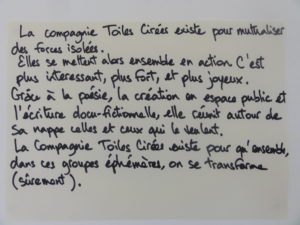 La compagnie Toiles Cirées existe pour mutualiser
des forces isolées.
Elles se mettent alors ensemble en action C'est
plus intéressant, plus fort, et plus joyeux.
Grâce à la poésie, la création en espace public et
l'écriture docu-fictionnelle, elle réunit autour de
sa nappe celles et ceux qui le veulent.
La Compagnie Toiles Cirées existe pour qu'ensemble,
dans ces groupes éphémères, on se transforme
(sûrement).